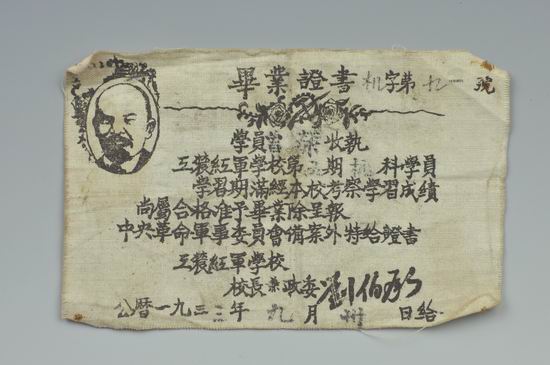 畢業證書 机字第 號
學員 收執
工農紅軍學校第 期 科學員
學習期滿經本校考察學習成績
尚屬合格准予畢業除呈報
中央革命軍事委員會備案外特給證書
工農紅軍學校
校長兼政委 劉伯承
公曆一九三二年九月卅日給